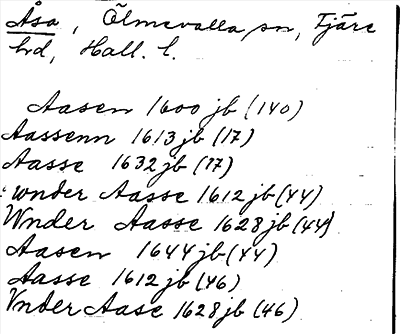 Åsa, Ölmevalla sn, Fjäre
hd, Hall. l.
Aasen 1600 jb (140)
Aassenn 1613 jb (17)
Aasse 1632 jb (17)
: wnder Aasse 1612 jb (44)
Wnder Aasse 1628 jb (44)
Aasen 1644 jb (44)
Aasse 1612 jb (46)
Vnder Aase 1628 jb (46)